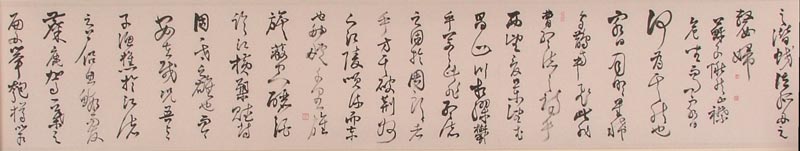 之潛蛟泣孤舟之
嫠婦
蘇子愀然正襟
危坐而問客曰
何為其然也
客曰月明星稀
烏鵲南飛此非
曹孟德之詩乎
西望夏口東望武
昌山川相繆鬱
乎蒼蒼此非孟德
之困於周郎者
乎方其破荊州
下江陵順流而東
也舳艫千里旌
旗蔽空釃酒
臨江橫槊賦詩
固一世之雄也而今
安在哉況吾與
子漁樵於江渚
之上侶魚蝦而友
麋鹿駕一葉之
扁舟舉匏樽以